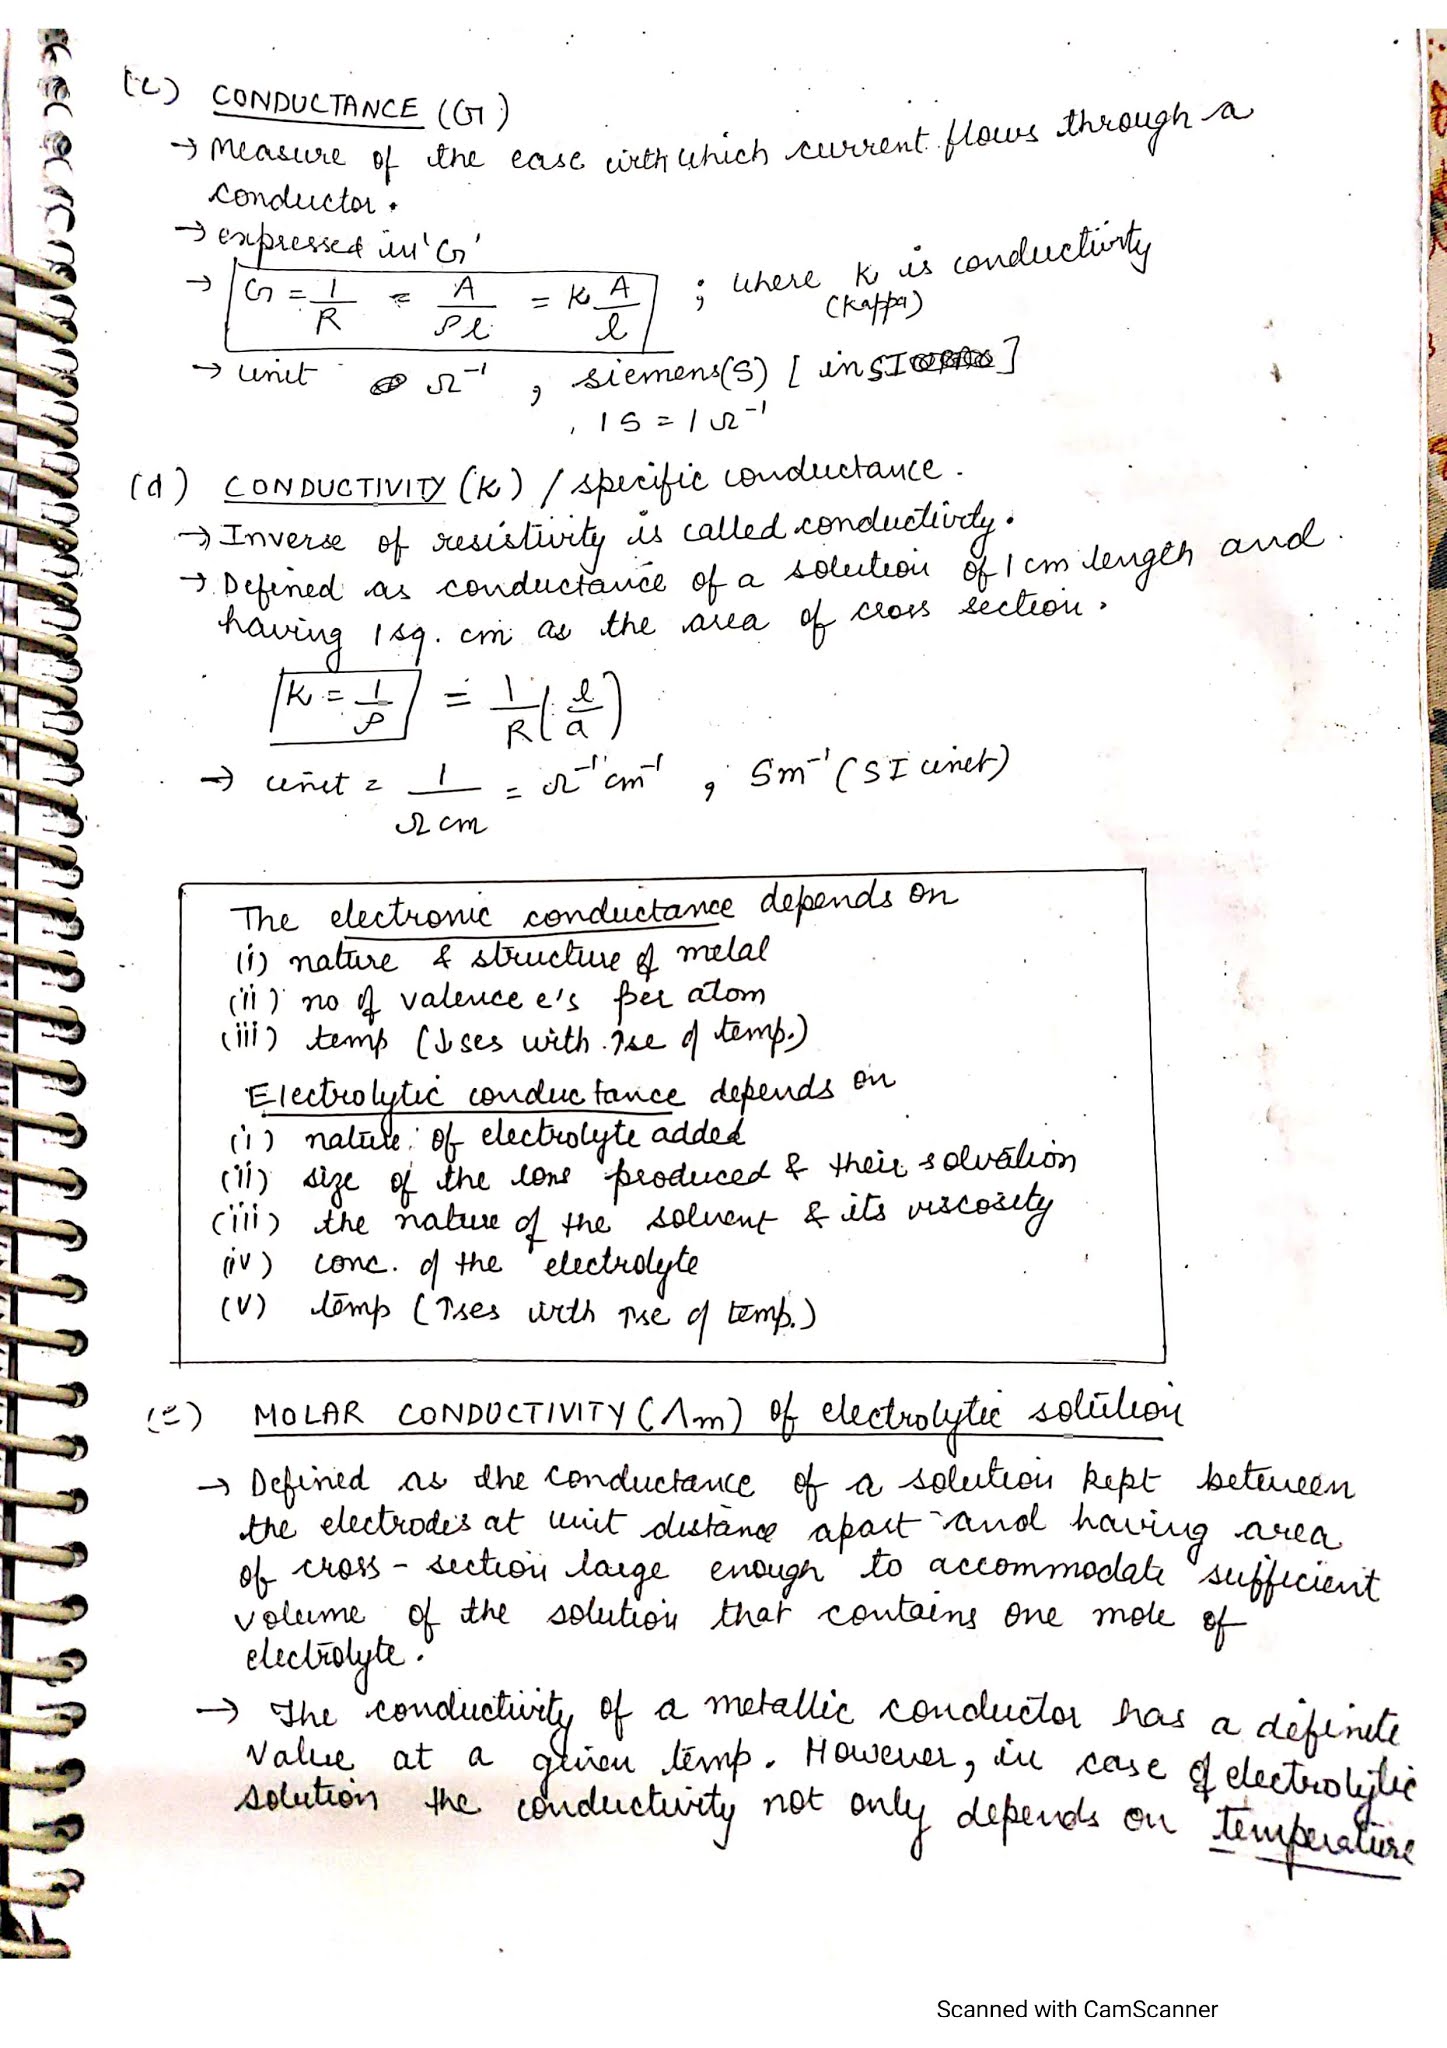 (c) CONDUCTANCE (G)
→ Measure of the ease with which current flows through a
conductor.
→ expressed in 'G'
→ G = 1/R = A/ρl = K A/l ; where K is conductivity
(Kappa)
→ unit Ω⁻¹ , siemens(S) [in SI ]
, 1 S = 1 Ω⁻¹
(d) CONDUCTIVITY (K) / specific conductance.
→ Inverse of resistivity is called conductivity.
→ Defined as conductance of a solution of 1 cm length and
having 1 sq. cm as the area of cross section.
K = 1/ρ = 1/R (l/a)
→ unit = 1/Ω cm = Ω⁻¹ cm⁻¹ , Sm⁻¹ (SI unit)
The electronic conductance depends on
(i) nature & structure of metal
(ii) no of valence e's per atom
(iii) temp (↓ses with ↑se of temp.)
Electrolytic conductance depends on
(i) nature of electrolyte added
(ii) size of the ions produced & their solvation
(iii) the nature of the solvent & its viscosity
(iv) conc. of the electrolyte
(v) temp (↑ses with ↑se of temp.)
(e) MOLAR CONDUCTIVITY (Λm) of electrolytic solution
→ Defined as the conductance of a solution kept between
the electrodes at unit distance apart and having area
of cross-section large enough to accommodate sufficient
volume of the solution that contains one mole of
electrolyte.
→ The conductivity of a metallic conductor has a definite
value at a given temp. However, in case of electrolytic
solution the conductivity not only depends on temperature
Scanned with CamScanner